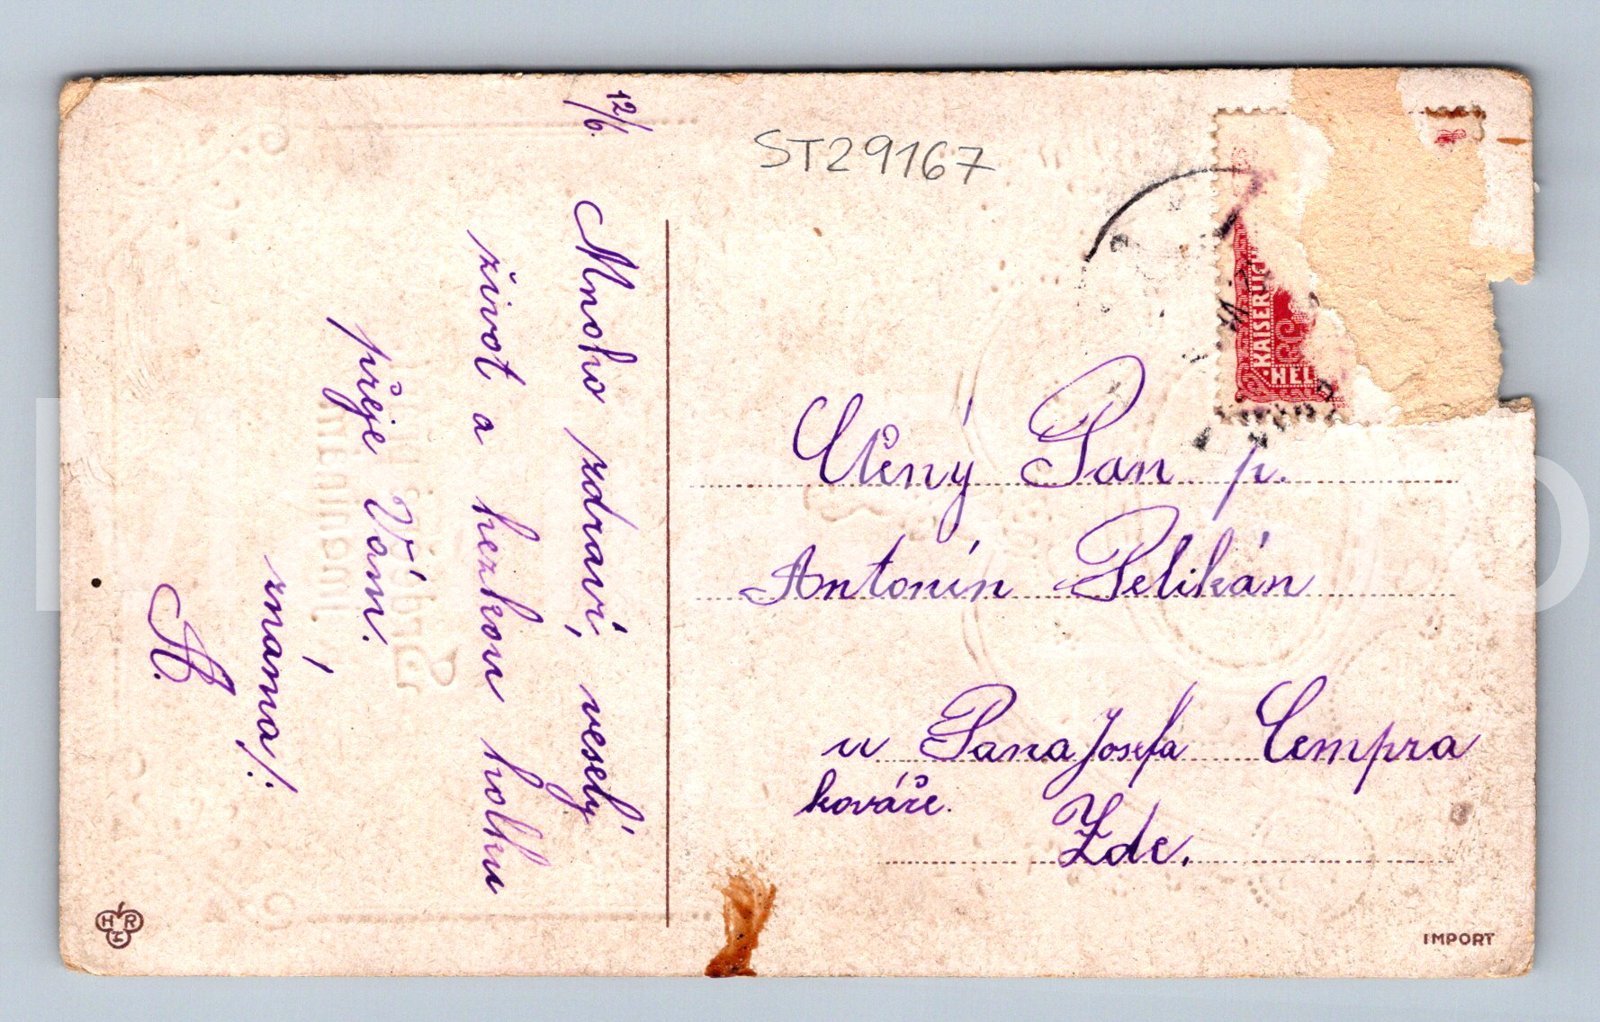 12/6.
Mnoho zdraví, veselý
život a hezkou holku
přeje Vám.
známa/:
A.
ST29167
KAISERLICHE
HEL
Ctěný Pan p.
Antonín Pelikán
u Pana Josefa Cempra
kováře.
Zde.
H R
I
IMPORT